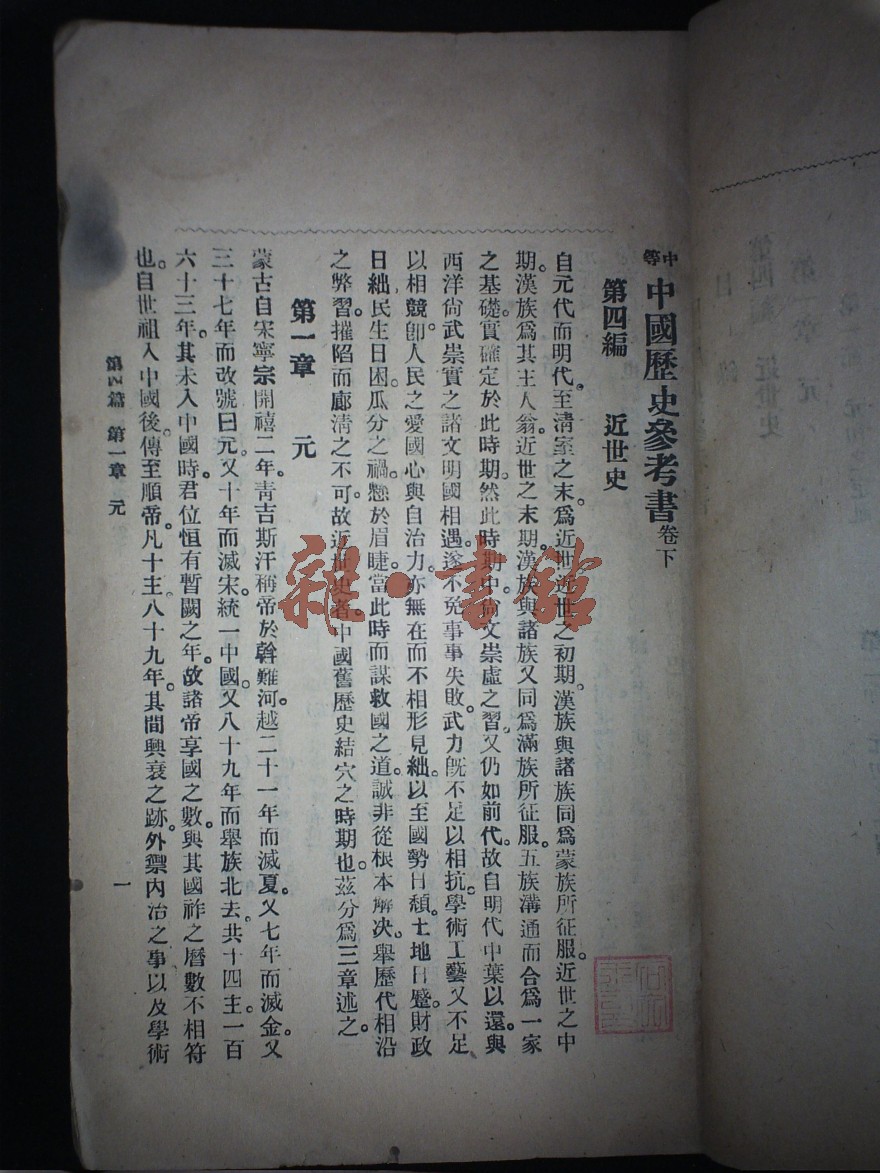 中等中國歷史參考書卷下
第四編 近世史
自元代而明代。至淸室之末。爲近世。近世之初期。漢族與諸族同爲蒙族所征服。近世之中
期。漢族爲其主人翁。近世之末期。漢族與諸族又同爲滿族所征服。五族溝通而合爲一家
之基礎。實確定於此時期。然此時期中。尙文崇虛之習。又仍如前代。故自明代中葉以還。與
西洋尙武崇實之諸文明國相遇。遂不免事事失敗。武力旣不足以相抗。學術工藝又不足
以相競。卽人民之愛國心與自治力。亦無在而不相形見絀。以至國勢日頹。土地日蹙。財政
日絀。民生日困。瓜分之禍。懸於眉睫。當此時而謀救國之道。誠非從根本解決。舉歷代相沿
之弊習。摧陷而廓淸之不可。故近世史者。中國舊歷史結穴之時期也。茲分爲三章述之。
第一章 元
蒙古自宋寧宗開禧二年。靑吉斯汗稱帝於斡難河。越二十一年而滅夏。又七年而滅金。又
三十七年而改號曰元。又十年而滅宋。統一中國。又八十九年而舉族北去。共十四主。一百
六十三年。其未入中國時。君位恒有暫闕之年。故諸帝享國之數。與其國祚之曆數不相符
也。自世祖入中國後。傳至順帝。凡十主八十九年。其間興衰之跡。外禦內治之事以及學術
第四篇 第一章 元
一
雜·書館